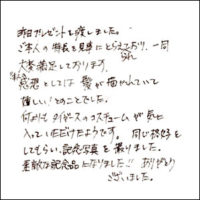 昨日プレゼントを渡しました。
ご本人の特長を見事にとらえており、一同
大笑 満足しております。
感想としては 髪が描かれていて
嬉しい！とのことでした。
何よりもタイガースのコスチュームが気に
入っていただけたようです。同じ格好を
してもらい、記念写真を撮りました。
素敵な記念品になりました!! ありがとう
ございました。